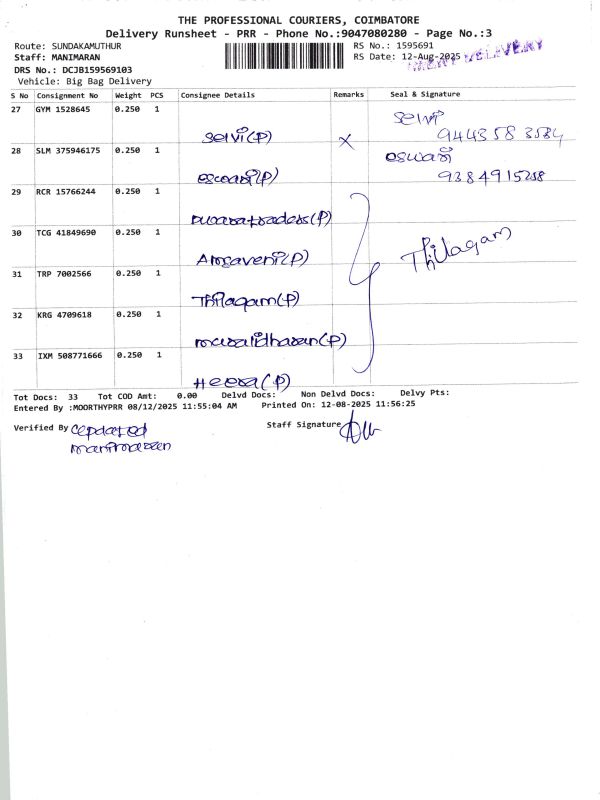 THE PROFESSIONAL COURIERS, COIMBATORE
Delivery Runsheet - PRR - Phone No.:9047080280 - Page No.:3
Route: SUNDAKAMUTHUR
RS No.: 1595691
Staff: MANIMARAN
RS Date: 12-Aug-2025
DELIVERY
DRS No.: DCJB159569103
Vehicle: Big Bag Delivery
S No Consignment No Weight PCS Consignee Details Remarks Seal & Signature
27 GYM 1528645 0.250 1
Selvi(P) x Selvi
9443583584
28 SLM 375946175 0.250 1
eswari(P) eswari
9384915258
29 RCR 15766244 0.250 1
30 TCG 41849690 0.250 1
Amsaveni(P) Thilagam
31 TRP 7002566 0.250 1
Thilagam(P)
32 KRG 4709618 0.250 1
muralidharan(P)
33 IXM 508771666 0.250 1
Heera(P)
Tot Docs: 33 Tot COD Amt: 0.00 Delvd Docs: Non Delvd Docs: Delvy Pts:
Entered By :MOORTHYPRR 08/12/2025 11:55:04 AM Printed On: 12-08-2025 11:56:25
Verified By
Staff Signature
manimaran